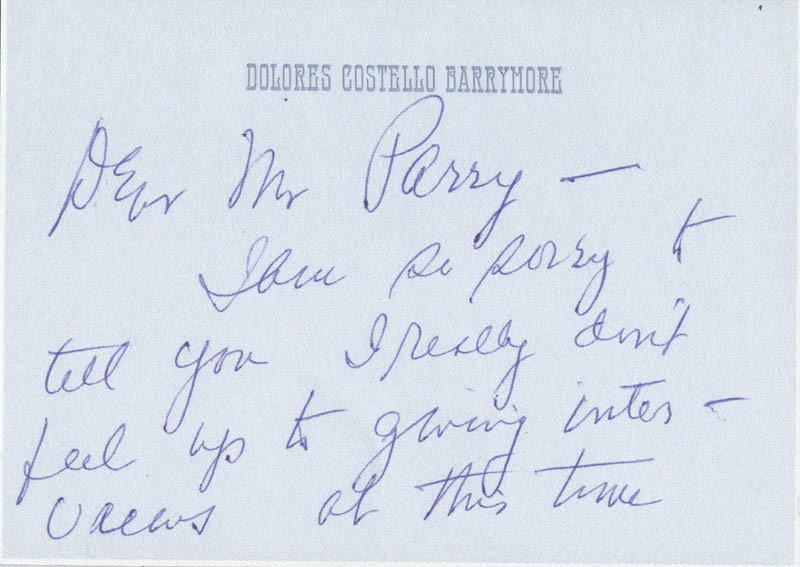 DOLORES COSTELLO BARRYMORE
Dear Mr Parry —
I am so sorry to
tell you I really don't
feel up to giving inter-
views at this time